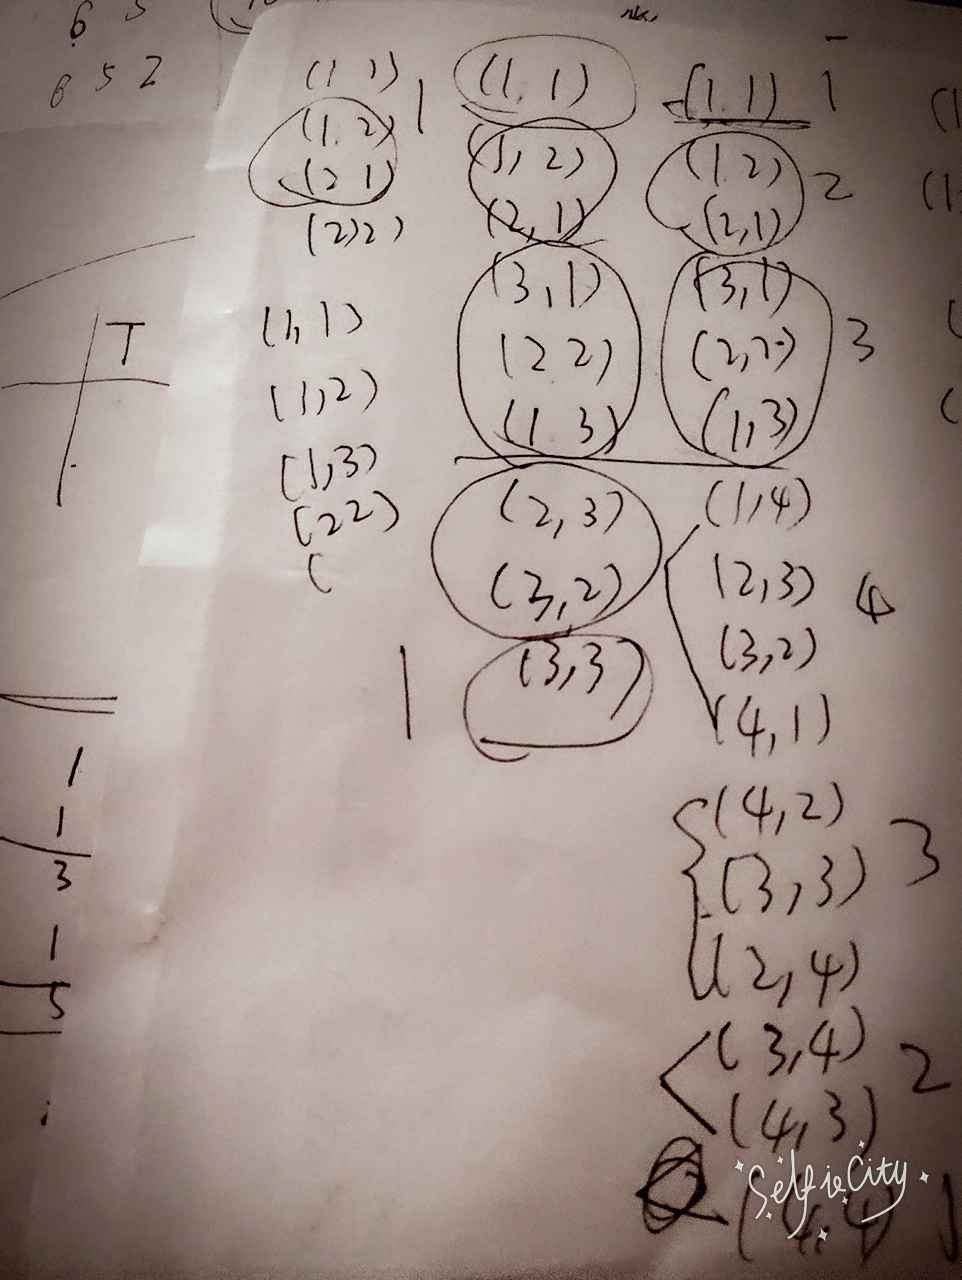 6 5
6 5 2
(1 1) 1
(1, 2)
(2 1)
(2,2)
(1, 1)
(1,2)
(1,3)
(2 2)
(
T
1
1
3
1
5
(1, 1)
(1, 2)
(2, 1)
(3, 1)
(2 2)
(1 3)
(2, 3)
(3, 2)
1 (3,3)
(1, 1) 1
(1 2) 2
(2,1)
(3,1)
(2,2) 3
(1,3)
(1,4)
(2,3) 4
(3,2)
(4,1)
(4,2)
(3,3) 3
(2,4)
(3,4) 2
(4,3)
(4,4)
SelfieCity